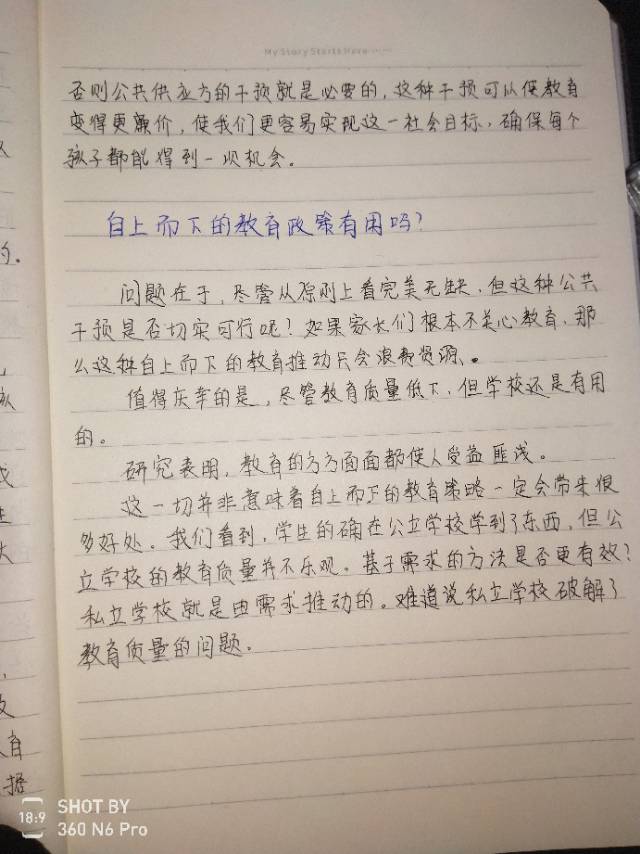 My Story Starts Here
否则公共供应方的干预就是必要的，这种干预可以使教育
变得更廉价，使我们更容易实现这一社会目标，确保每个
孩子都能得到一次机会。
自上而下的教育政策有用吗？
问题在于，尽管从原则上看完美无缺，但这种公共
干预是否切实可行呢？如果家长们根本不关心教育，那
么这种自上而下的教育推动只会浪费资源。
值得庆幸的是，尽管教育质量低下，但学校还是有用
的。
研究表明，教育的方方面面都使人受益匪浅。
这一切并非意味着自上而下的教育策略一定会带来很
多好处。我们看到，学生的确在公立学校学到了东西，但公
立学校的教育质量并不乐观。基于需求的方法是否更有效？
私立学校就是由需求推动的。难道说私立学校破解了
教育质量的问题。
的。
及
育
据
18:9 SHOT BY
360 N6 Pro